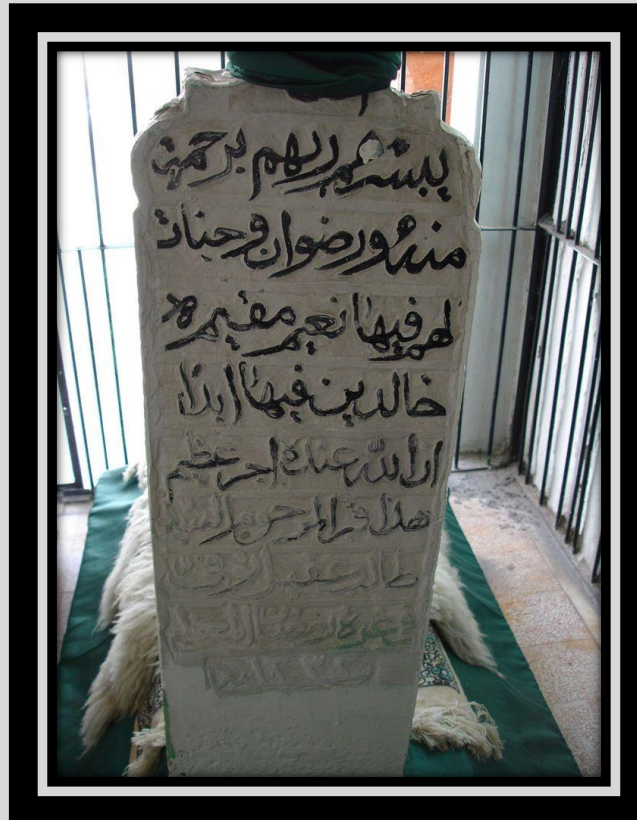 يبشرهم ربهم برحمة
منه ورضوان وجنات
لهم فيها نعيم مقيم
خالدين فيها ابدا
ان الله عنده اجر عظيم
هذا قبر المرحوم السيد
طالب عقيل
في غرة رمضان